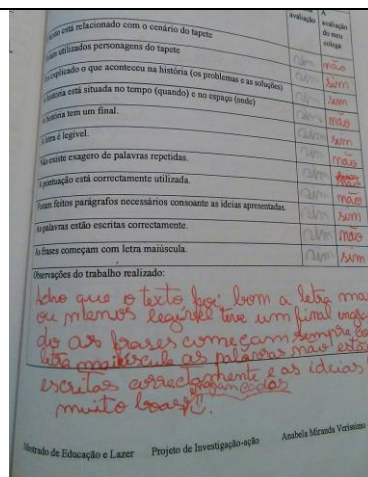 avaliação A avaliação do meu colega
texto está relacionado com o cenário do tapete
Foram utilizados personagens do tapete não
explicado o que aconteceu na história (os problemas e as soluções) sim
história está situada no tempo (quando) e no espaço (onde) sim
história tem um final. sim não
A letra é legível. sim sim
Não existe exagero de palavras repetidas. sim não
A pontuação está correctamente utilizada. sim
Foram feitos parágrafos necessários consoante as ideias apresentadas. sim sim
As palavras estão escritas correctamente. sim não
As frases começam com letra maiúscula. sim sim
Observações do trabalho realizado:
Acho que o texto foi bom a letra mais
ou menos legível teve um final engraça
do as frases começam sempre com
letra maiúscula as palavras não estão
escritas correctamente e as ideias
engraçadas
muito boas
Mestrado de Educação e Lazer Projeto de Investigação-ação Anabela Miranda Veríssimo